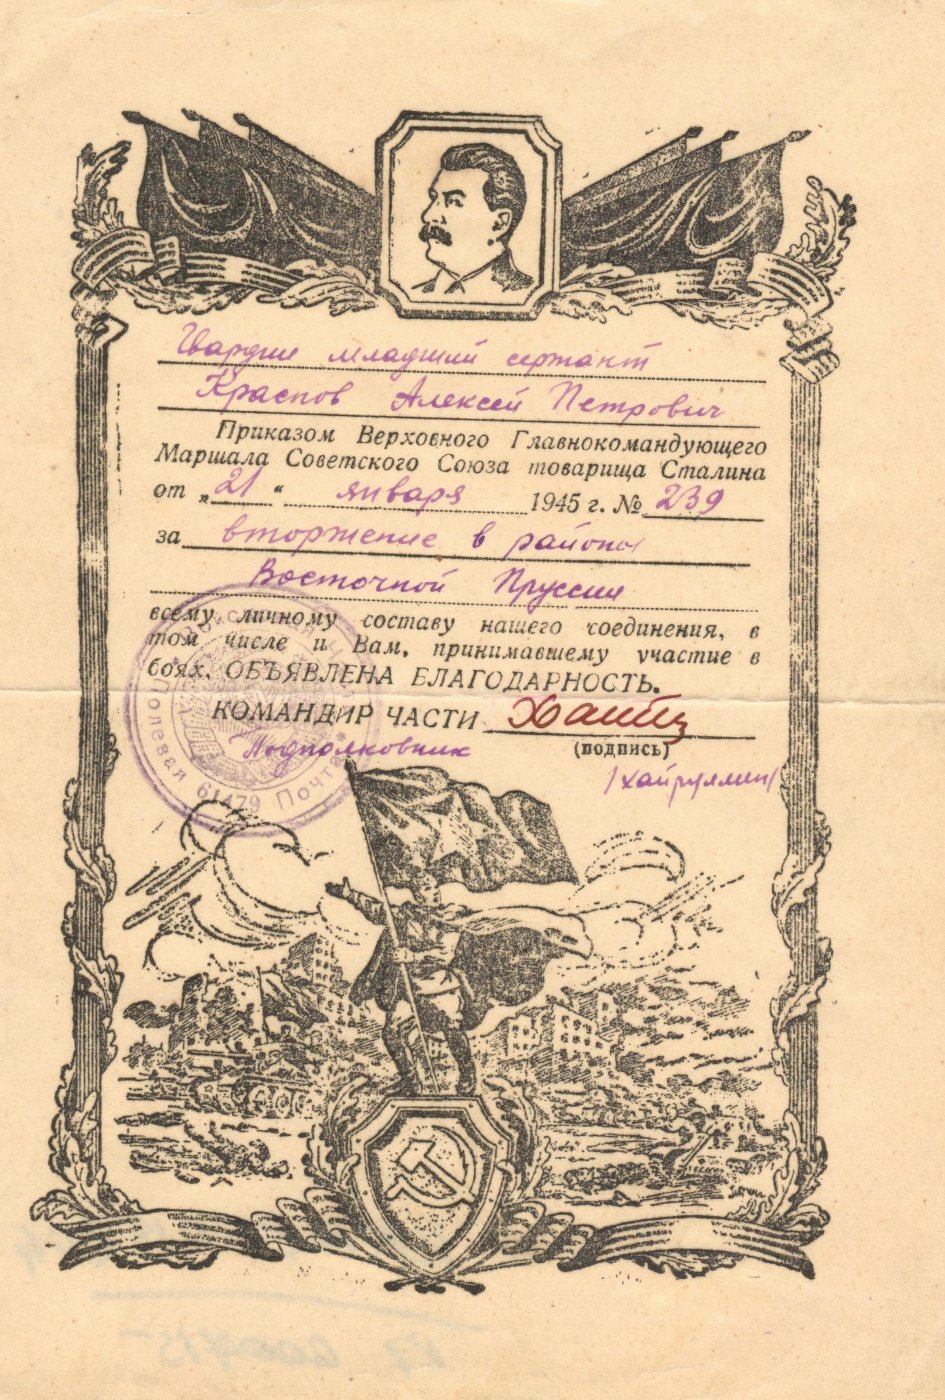 Гвардии младший сержант
Краснов Алексей Петрович
Приказом Верховного Главнокомандующего
Маршала Советского Союза товарища Сталина
от „21“ января 1945 г. № 239
за вторжение в районы
Восточной Пруссии
всему личному составу нашего соединения, в
том числе и Вам, принимавшему участие в
боях, ОБЪЯВЛЕНА БЛАГОДАРНОСТЬ.
КОМАНДИР ЧАСТИ
Подполковник (подпись)
/Хайруллин/
Полевая Почта 61479